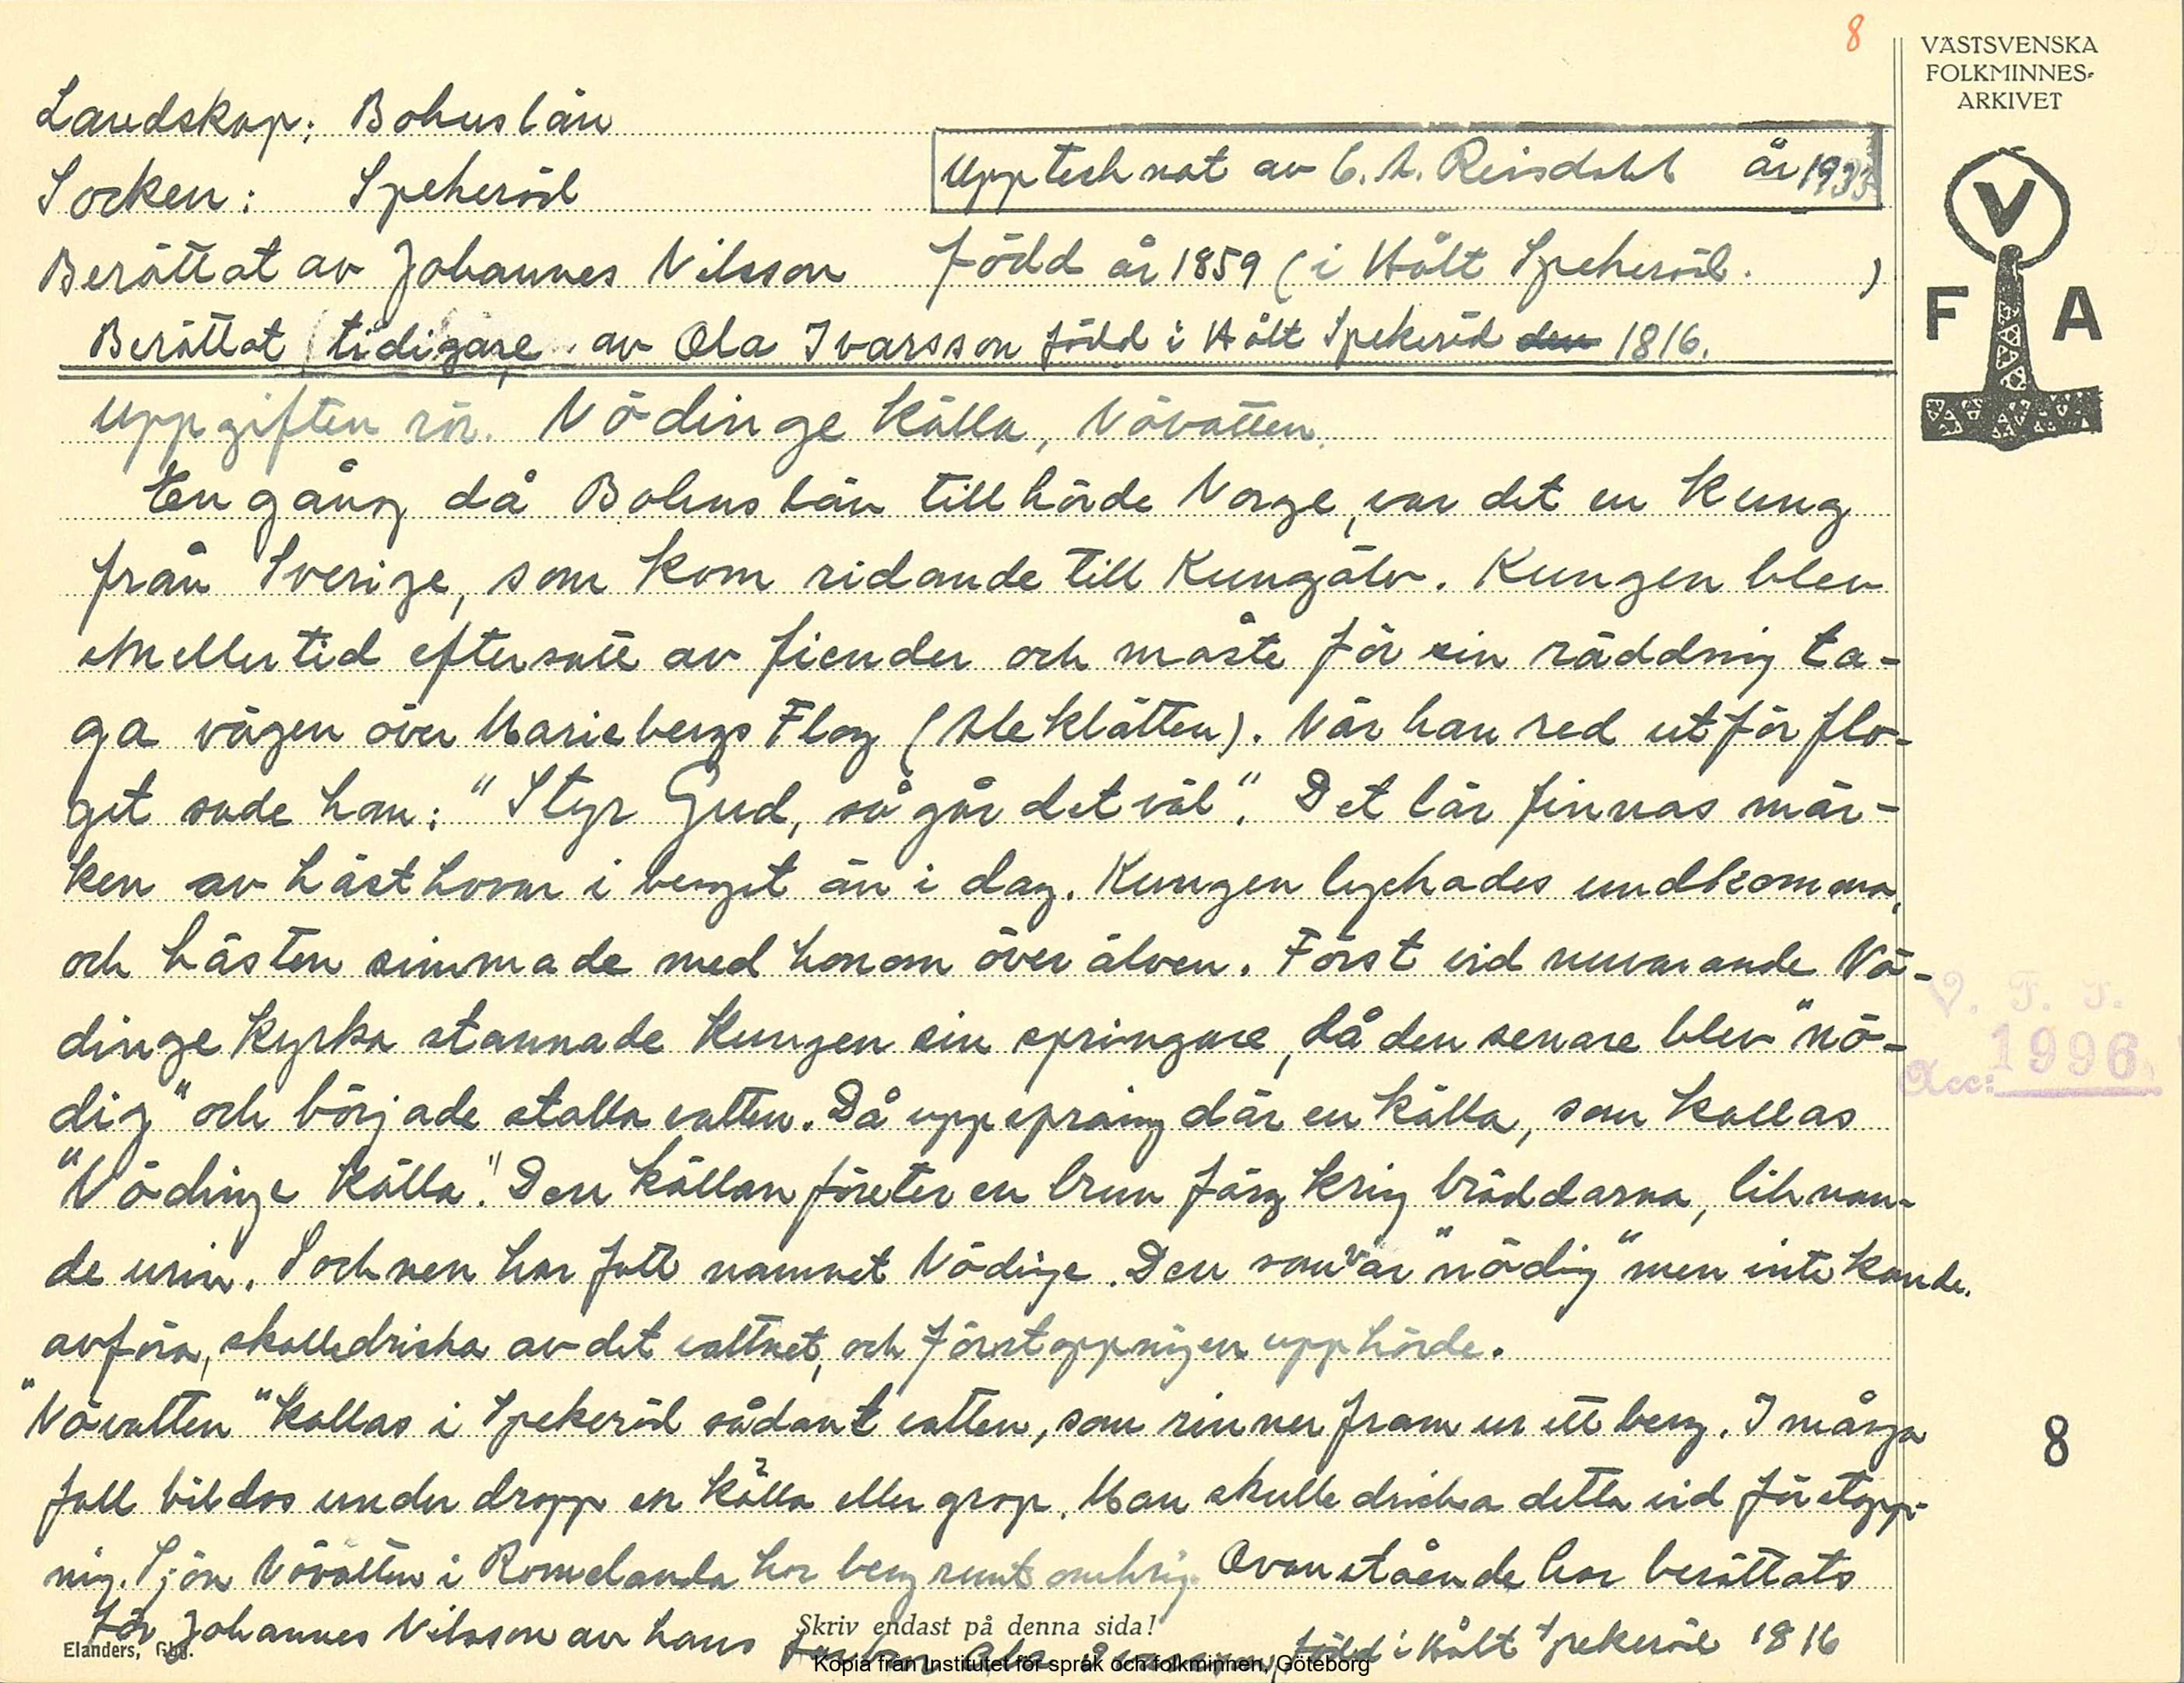 8
VÄSTSVENSKA
FOLKMINNES-
ARKIVET
V
F A
Landskap: Bohuslän
Upptecknat av C. A. Reisdahl år 1933
Socken: Spekeröd
Berättat av Johannes Nilsson född år 1859 (i Hålt Spekeröd. )
Berättat tidigare av Ola Ivarsson född i Hålt Spekeröd den 1816.
Uppgiften rör. Nödinge Källa, Növatten.
En gång då Bohuslän tillhörde Norge, var det en Kung
från Sverige, som kom ridande till Kungälv. Kungen blev
emellertid eftersatt av fiender och måste för sin räddnig ta-
ga vägen över Mariebergs Flog (Aleklätten). När han red utför flo-
get sade han: "Styr Gud, så går det väl". Det lär finnas mär-
ken av hästhovar i berget än i dag. Kungen lyckades undkomma,
och hästen simmade med honom över älven. Först vid nuvarande Nö-
dinge Kyrka stannade Kungen sin springare, då den senare blev "nö-
dig" och började stalla vatten. Då uppsprang där en källa, som kallas
"Nödinge Källa". Den källan företer en brun färg kring bräddarna, liknan-
de urin. Socknen har fått namnet Nödinge. Den som var "nödig" men inte kunde.
avföra, skulle dricka av det vattnet, och förstoppnigen upphörde.
"Növatten" kallas i Spekeröd sådant vatten, som rinner fram ur ett berg. I många
fall bildas under dropp en källa eller grop. Man skulle dricka detta vid förstopp-
nig. Sjön Növatten i Romelanda har berg runt omkrig. Ovanstående har berättats
för Johannes Nilsson av hans född i Hålt Spekeröd 1816
V. F. F.
Acc: 1996.
8
Skriv endast på denna sida!
Elanders, Gbg.
Kopia från Institutet för språk och folkminnen, Göteborg